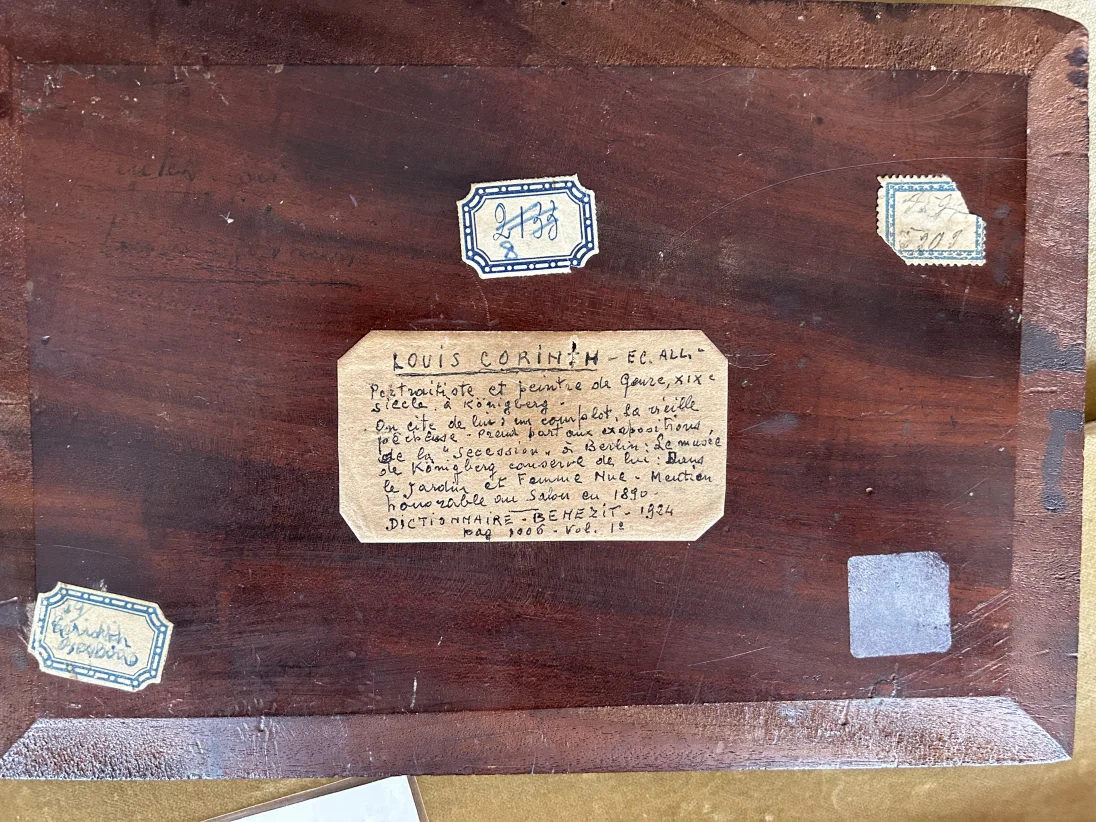 2133
8
LOUIS CORINTH - EC. ALL. -
Portraitiste et peintre de Genre, XIXe
siècle, à Königberg -
On cite de lui: un complot, la vieille
pécheuse - Prend part aux expositions
de la "Secession" à Berlin: Le musée
de Königberg conserve de lui: Dans
le Jardin et Femme Nue - Mention
honorable au Salon en 1890 -
DICTIONNAIRE - BENEZIT - 1924
pag 1006 - Vol. 1º